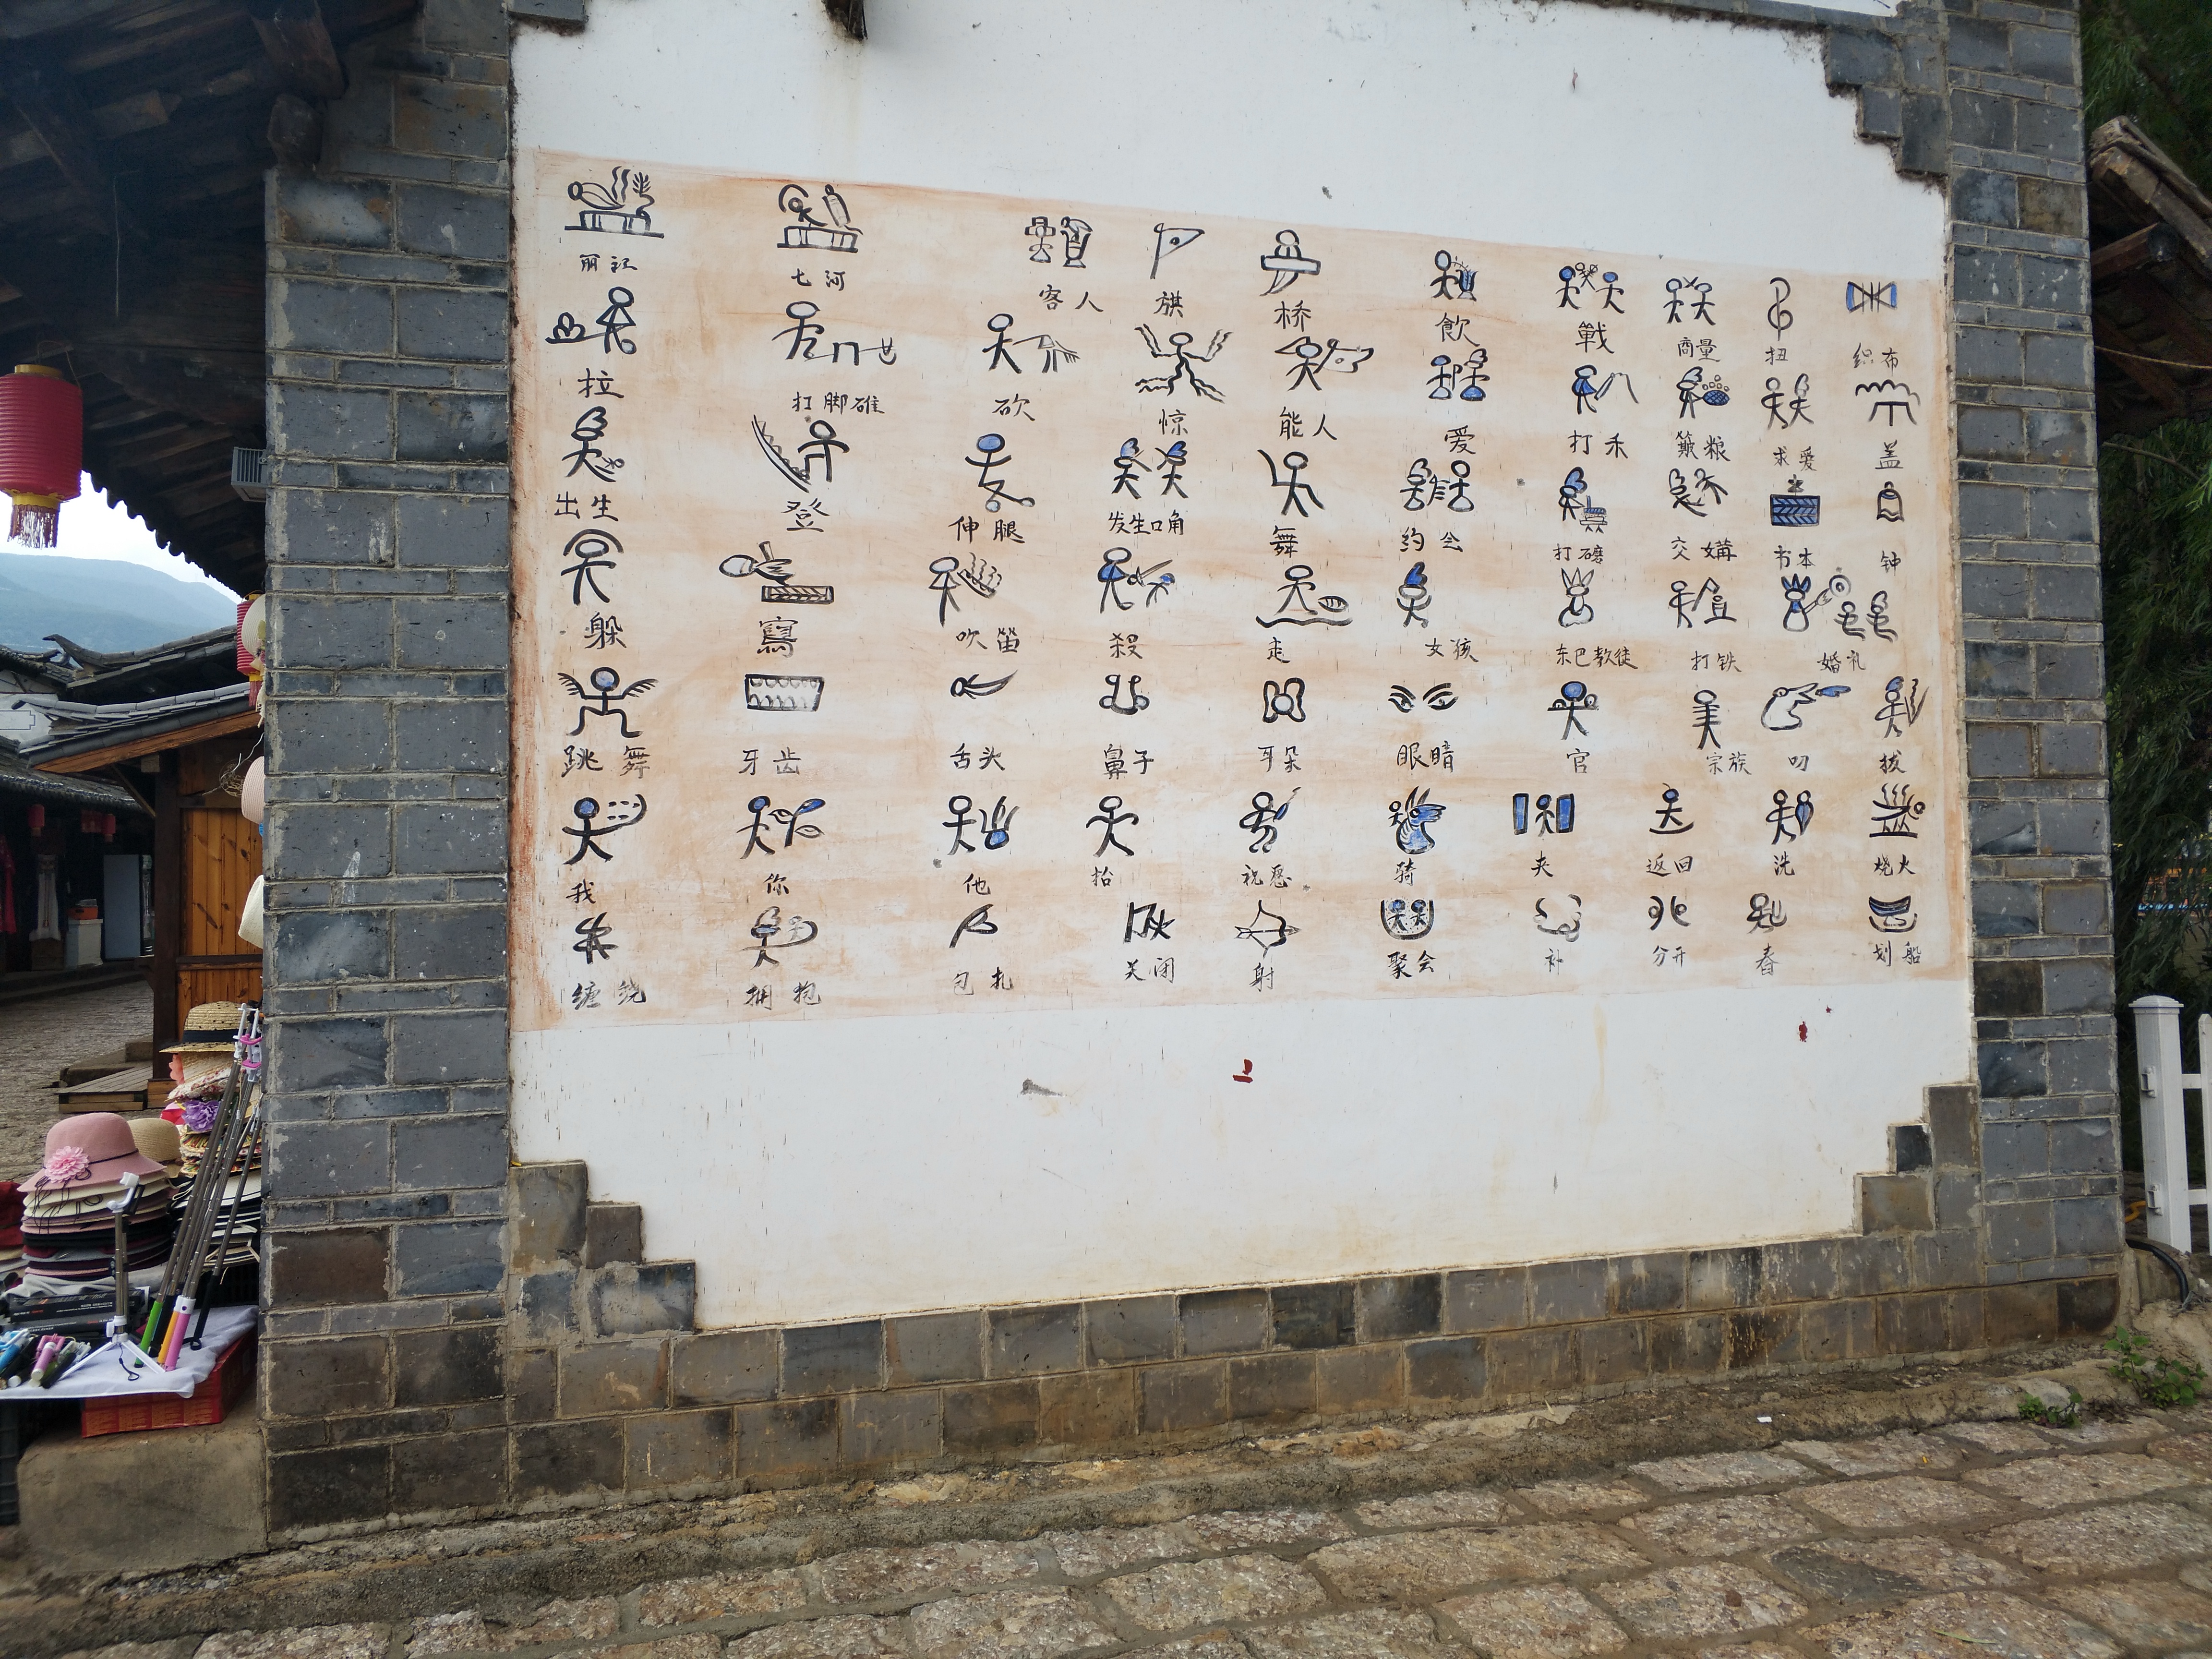 丽江 七河 客人 旗 桥 飲 戰 商量 扭 织布
拉 打脚碓 砍 惊 能人 爱 打禾 簸粮 求爱 盖
出生 登 伸腿 发生口角 舞 约会 打礳 交媾 书本 钟
躲 寫 吹笛 殺 走 女孩 东巴教徒 打铁 婚礼
跳舞 牙齿 舌头 鼻子 耳朵 眼暗 官 宗族 叨 拔
我 你 他 抬 祝愿 骑 夹 返回 洗 烧火
缠绕 拥抱 包扎 关闭 射 聚会 补 分开 春 划船